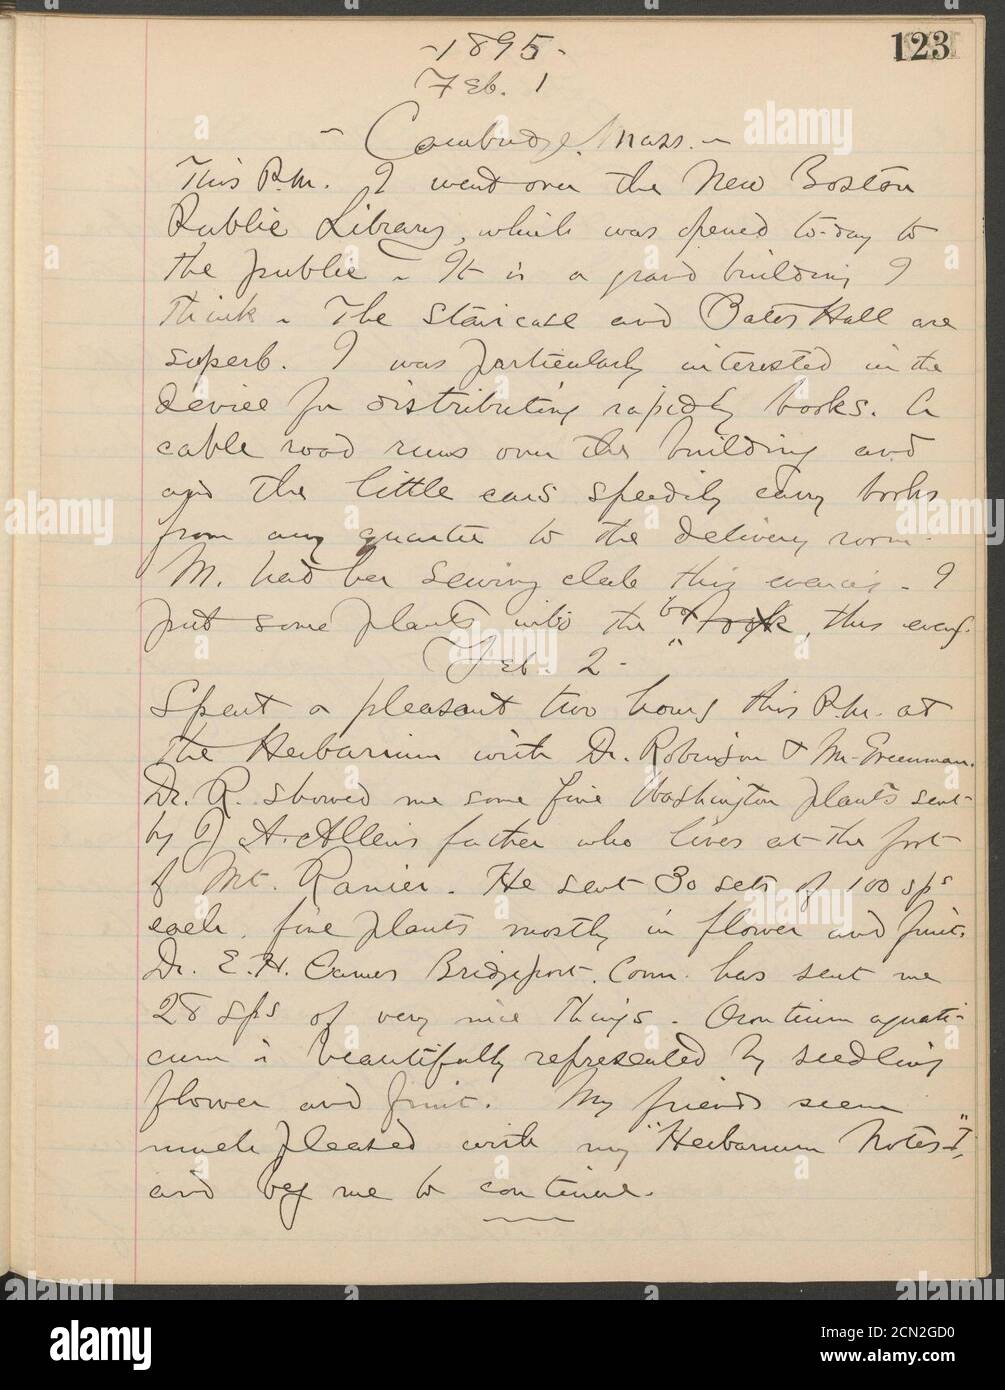 123
-1895-
Feb. 1
- Cambridge, Mass. -
This P.M. I went over the New Boston
Public Library, which was opened to-day to
the public - It is a grand building I
think - The staircase and Bates Hall are
superb. I was particularly interested in the
device for distributing rapidly books. A
cable road runs over the building and
and the little cars speedily carry books
from any quarter to the delivery room.
M. had her sewing club this evening - I
put some plants into the box, this eveng.
Feb. 2 -
Spent a pleasant two hours this P.M. at
the Herbarium with Dr. Robinson & Mr. Greenman.
Dr. R. showed me some fine Washington plants sent
by J. A. Allen's father who lives at the foot
of Mt. Ranier. He sent 30 sets of 100 sps
each, fine plants mostly in flower and fruit.
Dr. E. H. Eames Bridgeport, Conn. has sent me
28 sps of very nice things. Orontium aquati-
cum is beautifully represented by seedling
flower and fruit. My friends seem
much pleased with my "Herbarium Notes I",
and beg me to continue.
alamy
Image ID: 2CN2GD0
www.alamy.com